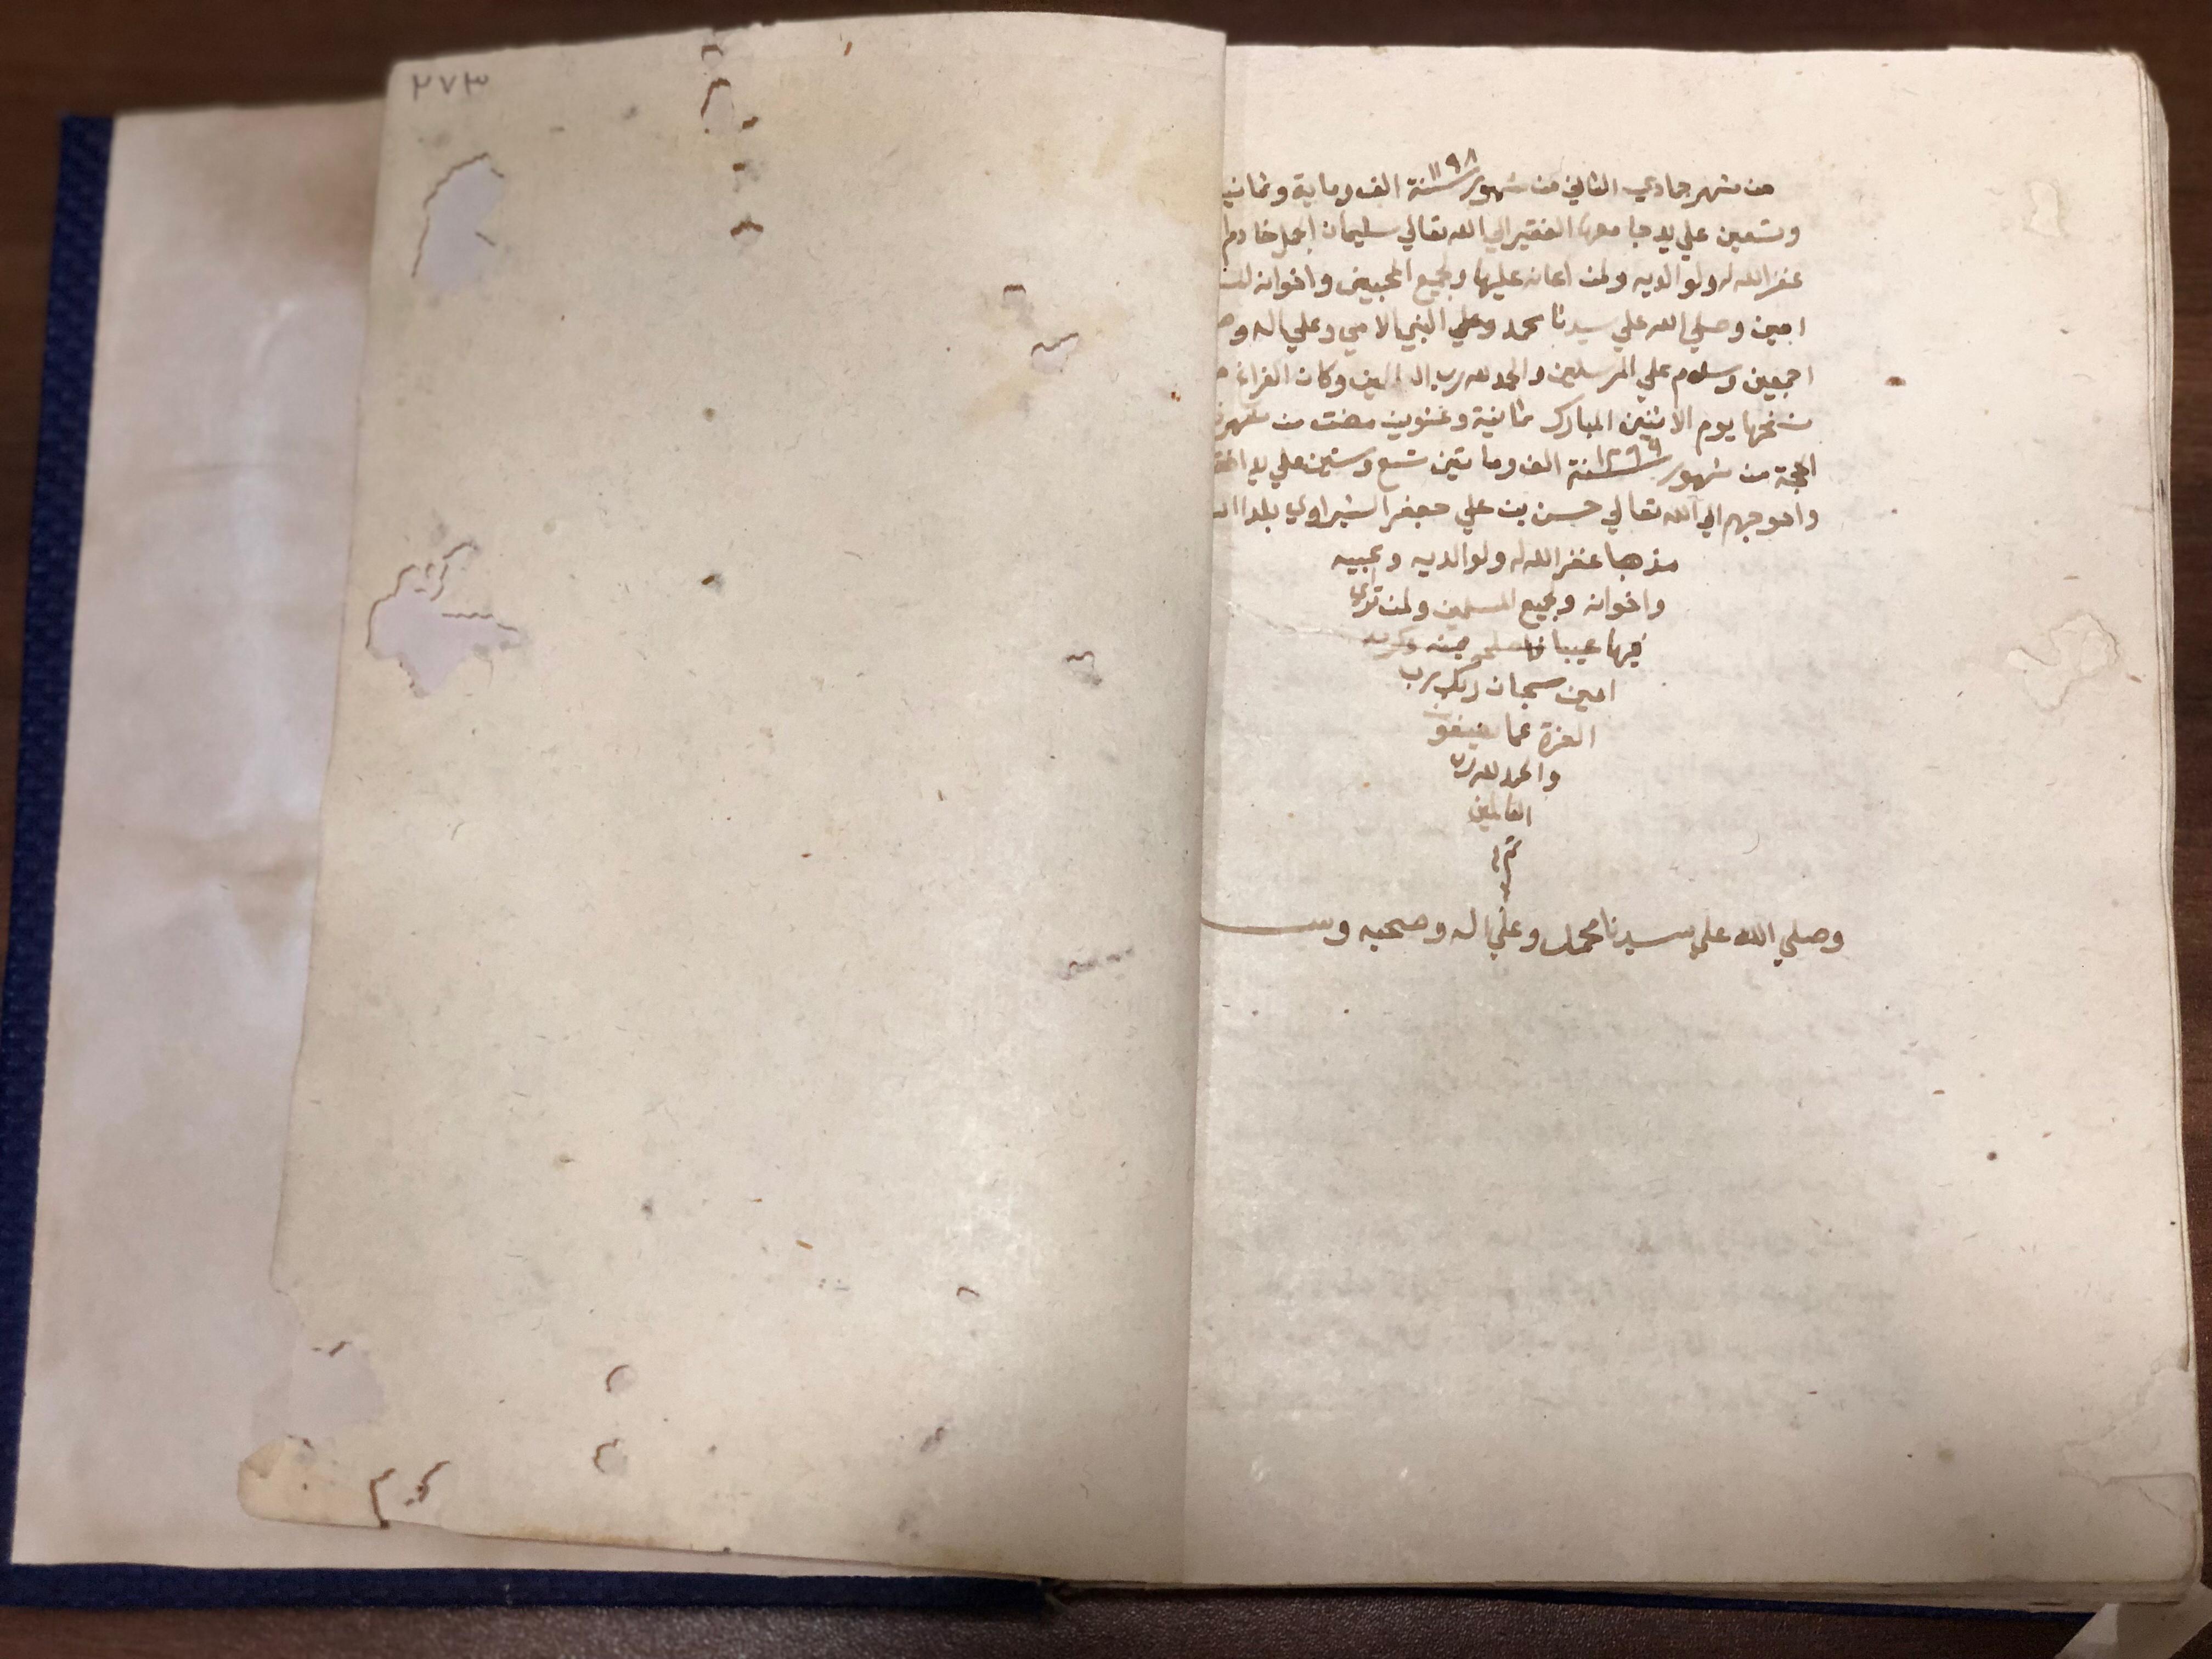 ٢٧٣
من شهر جمادي الثاني من شهور سنة ١١٩٨ الف وماية وثمانية
وتسعين علي يد جامعها الفقير الي الله تعالي سليمان الجمل خادم
غفر الله له ولوالديه ولمن اعانه عليها ولجميع المحبين واخوانه
امين وصلي الله علي سيدنا محمد وعلي النبي الامي وعلي اله
اجمعين وسلام علي المرسلين والحمد لله رب العالمين وكان الفراغ
نسخها يوم الاثنين المبارك ثمانية وعشرين مضت من شهر
الحجة من شهور سنة ١٢٦٩ الف ومايتين تسع وستين علي يد
واحوجهم الي الله تعالي حسن بن علي جعفر الشبراوي بلدا
مذهبا غفر الله له ولوالديه ومحبيه
واخوانه ولجميع المسلمين ولمن
فيها عيبا
امين سبحان ربك رب
العزة عما يصفون
والحمد لله رب
العالمين
تم
وصلي الله علي سيدنا محمد وعلي اله وصحبه وس